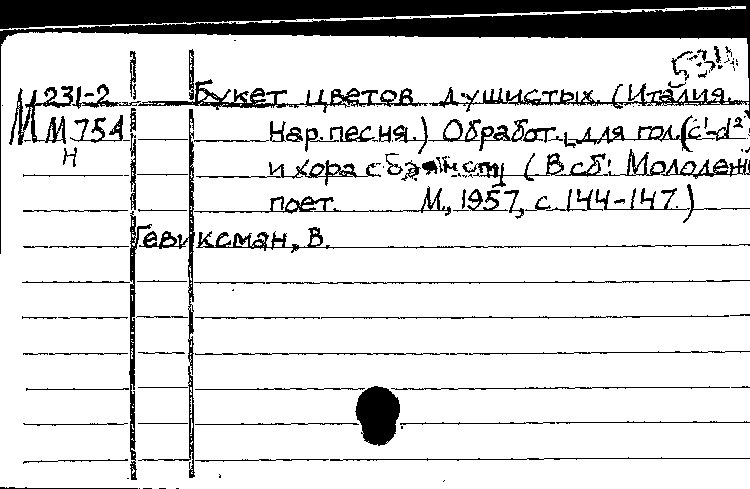 534
М 231-2 Букет цветов душистых. (Италия.
М М 754 Нар. песня.) Обработ. для гол. (c¹-d²)
Н и хора с баянсты (В сб: Молодежь
поет. М., 1957, с. 144-147.)
Гевиксман, В.